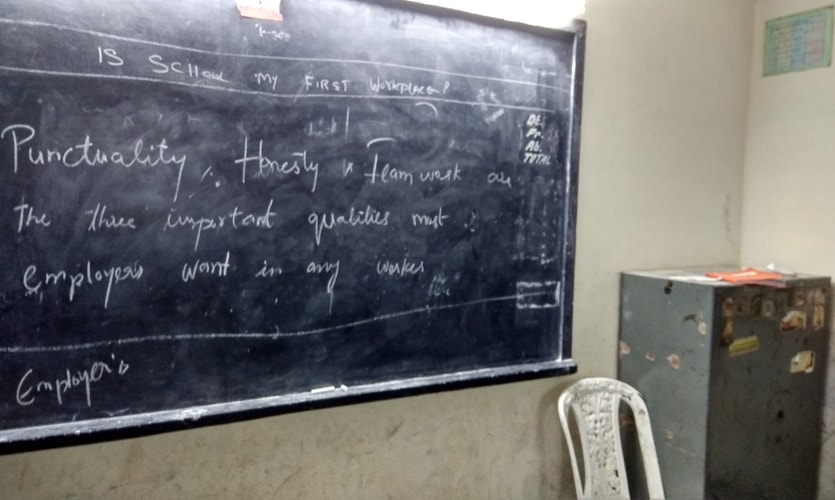 IS SCHOOL MY FIRST WORKPLACE?
Punctuality, Honesty & Teamwork are
The three important qualities most
employer's want in any worker
Employer's
Dt.
Pr.
Ab.
TOTAL